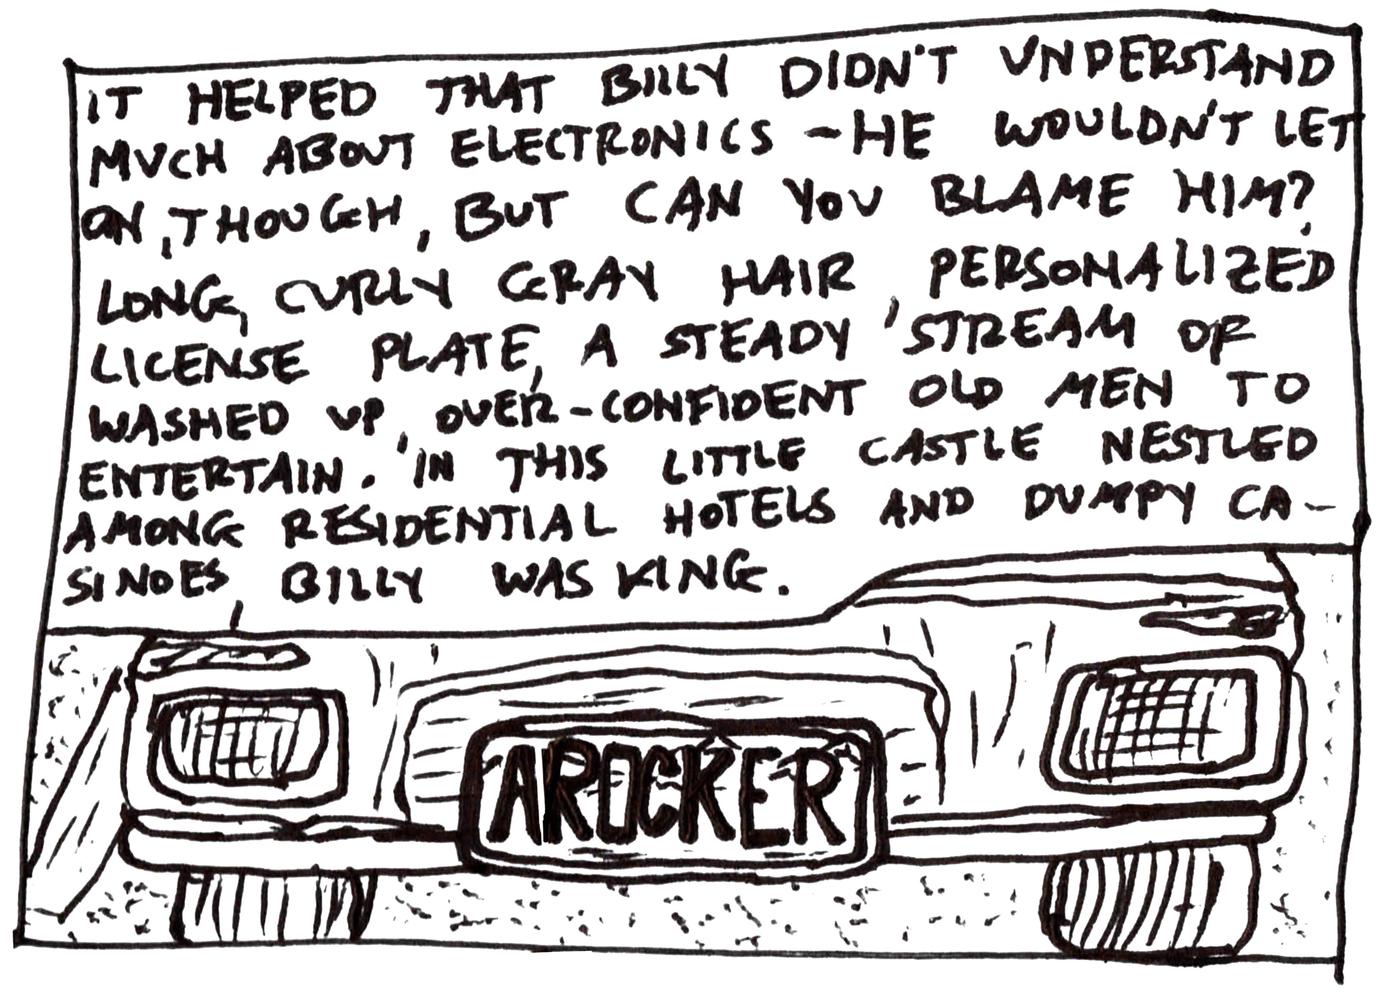 IT HELPED THAT BILLY DIDN'T UNDERSTAND
MUCH ABOUT ELECTRONICS - HE WOULDN'T LET
ON, THOUGH, BUT CAN YOU BLAME HIM?
LONG, CURLY GRAY HAIR, PERSONALIZED
LICENSE PLATE, A STEADY STREAM OF
WASHED UP, OVER-CONFIDENT OLD MEN TO
ENTERTAIN. IN THIS LITTLE CASTLE NESTLED
AMONG RESIDENTIAL HOTELS AND DUMPY CA-
SINOES, BILLY WAS KING.
AROCKER